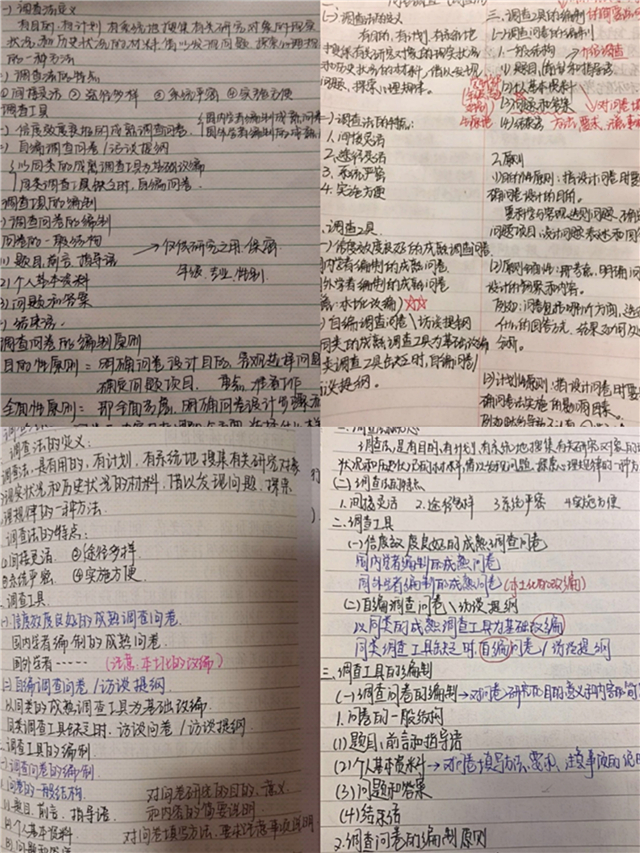 (一)调查法定义
有目的,有计划,有系统地搜集有关研究对象的现实
状况和历史状况的材料,借以发现问题,探索心理规律
的一种方法
(二)调查法的特点
①间接灵活 ②途径多样 ③系统严密 ④实施方便
调查工具
信度效度良好的成熟调查问卷
国内学者编制成熟问卷
国外学者编制的成熟
自编调查问卷/访谈提纲
以同类的成熟调查工具为基础改编
同类调查工具缺乏时,自编问卷
调查工具的编制
调查问卷的编制
问卷的一般结构
(1)题目,前言,指导语
→仅供研究之用,保密
(2)个人基本资料
年级、专业、性别
(3)问题和答案
(4)结束语
调查问卷的编制原则
目的性原则:明确问卷设计目的,
确定问题项目
全面性原则:
(一)调查法的定义
有目的,有计划,有系统地
搜集有关研究对象的现实状况
和历史状况的材料,借以发现
问题,探索心理规律。
(二)调查法的特点:
1.间接灵活
2.途径灵活
3.系统严密
4.实施方便
二、调查工具
(一)信度效度良好的成熟调查问卷
国内学者编制的成熟问卷
国外学者编制的成熟问卷
(二)自编调查问卷\访谈提纲
同类的成熟调查工具为基础改编
类调查工具缺乏时,自编问卷/
访谈提纲。
三、调查工具的编制
(一)调查问卷的编制
1.一般结构
(1)题目,前言和指导语
(2)个人基本资料
(3)问题和答案
(4)结束语
2.原则
(1)目的性原则:指设计问卷时要
明确问卷设计的目的。
(2)原则全面性:
设计的框架和内容。
(3)计划性原则:指设计问卷时要
明确问卷实施的影响因素。
调查法的定义:
调查法是有目的,有计划,有系统地搜集有关研究对象
现实状况和历史状况的材料,借以发现问题,探索
心理规律的一种方法.
调查法的特点:
①间接灵活 ②途径多样
③系统严密 ④实施方便.
二.调查工具
(一)信度效度良好的成熟调查问卷.
国内学者编制的成熟问卷.
国外学者…… (注意:本土化的改编)
(二)自编调查问卷/访谈提纲
以同类的成熟调查工具为基础改编.
同类调查工具缺乏时,访谈问卷/访谈提纲.
三.调查工具的编制.
(一)调查问卷的编制.
1.问卷的一般结构
对问卷研究的目的、意义
(1)题目、前言、指导语
和内容的简要说明
(2)个人基本资料
对问卷填写方法、要求、注意事项说明
(3)问题和答案
调查法是有目的,有计划,有系统地搜集有关研究对象的现实
状况和历史状况的材料,借以发现问题,探索心理规律的一种方法
(二)调查法的特点
1.间接灵活 2.途径多样 3.系统严密 4.实施方便
二、调查工具
(一)信度效度良好的成熟调查问卷
国内学者编制的成熟问卷
国外学者编制的成熟问卷(本土化的改编)
(二)自编调查问卷\访谈提纲
以同类的成熟调查工具为基础改编
同类调查工具缺乏时,自编问卷/访谈提纲
三、调查工具的编制
(一)调查问卷的编制→对问卷研究的目的意义和内容的简
1.问卷的一般结构
(1)题目,前言和指导语
(2)个人基本资料→对问卷填写方法、要求、注意事项的说明
(3)问题和答案
(4)结束语
2.调查问卷的编制原则